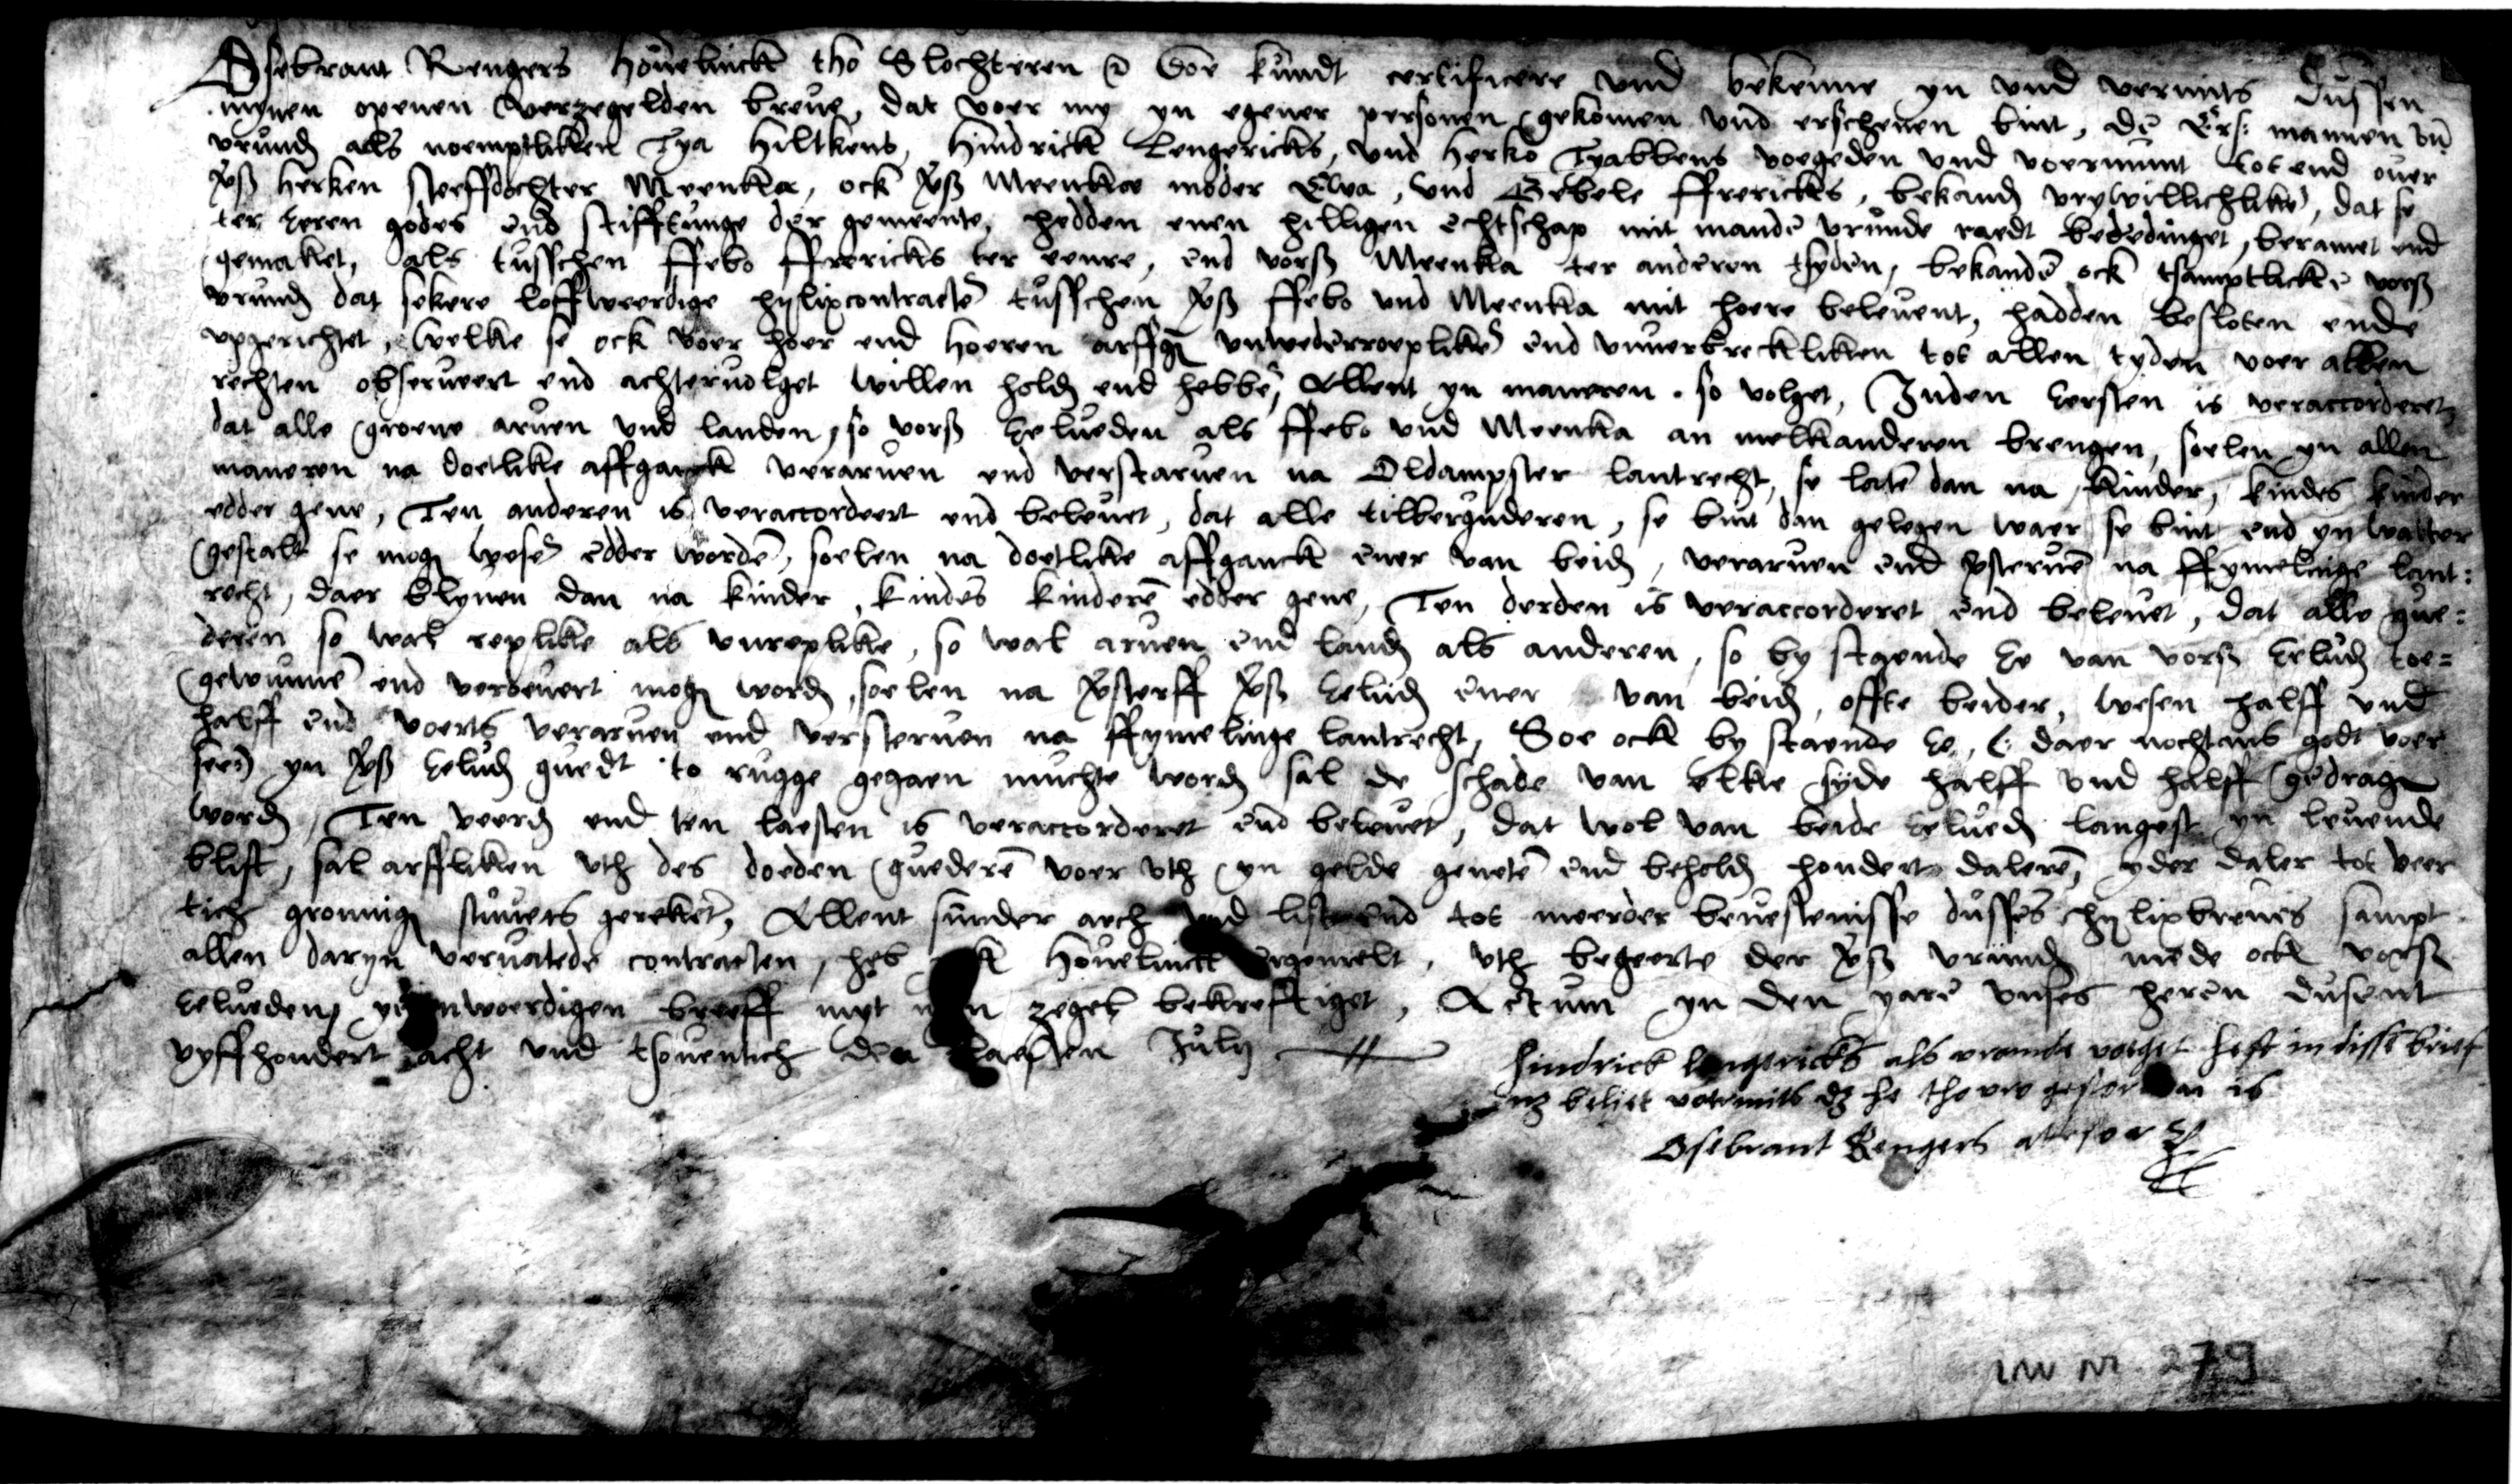 Osebrant Rengers hoŭelinck tho Slochteren etc Doe kundt certificere vnd bekenne yn vnd vermits Dussen
mynen openen verzegelden breue, dat voer my yn egener personen gekomen vnd erschenen sint, de Ers: mannen vñ
vrund als noemptliken Tya Hiltkens, Hindrick Lengericks, vnd Herko Tyabbens voegeden vnd voermunt tot end ouer
vß Herken steeffdochter Meenka, ock vß Meenka moder Elua, vnd Gebele ffrericks, bekand vrywillichlike, dat se
ter heren godes end stifftunge der gemeente, hedden enen hilligen echtschap mit mande vrunde raedt bededinget, beramet end
gemaket, als tusschen ffebo ffrericks ter eenre, end vorß Meenka ter anderen tsyden, bekande ock tsamptlicke vorß
vrund dat sekere loffweerdige hylixcontracte tusschen vß ffebo vnd Meenka mit hoere beleuent, hadden besloten ende
vpgerichtet, Welke se ock voer hoer end hoeren arffg vnwederroeplike end vnuerbrecliken tot allen tyden voer allen
rechten obserueert end achteruolget willen hold end hebbe, Allent yn maneren so volget, Inden eersten is veraccorderet
dat alle groene aruen vnd landen, so vorß eelueden als ffebo vnd Meenka an melkanderen brengen, soelen yn allen
maneren na doetlike affganck veraruen end verstaruen na Oldampster lantrecht, se late dan na kinder, kindes kinder
edder gene, Ten anderen is veraccordeert end beleuet, dat alle tilberguderen, se sint dan gelegen waer se sint end yn watter
gestalt se mog wese edder worde, soelen na doetlike affganck ener van beid, veraruen end vsterue na ffymelinge lant:
recht, daer blyuen dan na kinder, kindes kindere edder gene, Ten derden is veraccorderet end beleuet, dat alle gue:
deren so wal replike als vnreplike, so wal aruen end land als anderen, so by staende ee van vorß eelud toe=
gewunne end verouert mog word, soelen na vsterff vß eelud ener van beid, offte beider, wesen halff vnd
halff end voerts veraruen end versteruen na ffymelinge lantrecht, Soe ock by staende ee, (: daer nochtans godt voer
see:) yn vß eelud guedt to rugge gegaen muchte word sal de schade van elke syde halff vnd halff gedrag
word, Ten veerd end ten laesten is veraccorderet end beleuet, dat wol van beide eelued langest yn leuende
blift, sal arffliken vth des doeden guedere voer vth yn gelde genete end behold hondert daleren, yder daler tot veer
tich gronnig stuuers gereket, Allent sunder arch vnd list end tot meerder beuestenisse dusses hylixbreues sampt
allen daryn veruatede contracten, heb k Houelinck gemelt, vth begeerte der vß vrund mede ock vorß
eelueden, nwoerdigen breeff myt n zegel bekrefftiget, Actum yn den yare vnses heren dusent
vyffhondert acht vnd tsouentich den laesten July
Hindrick Lengericks als voget heft in disse brief
beliet vormits dz he tho vro gestor en is
Osebrant Rengers
inv nr. 279